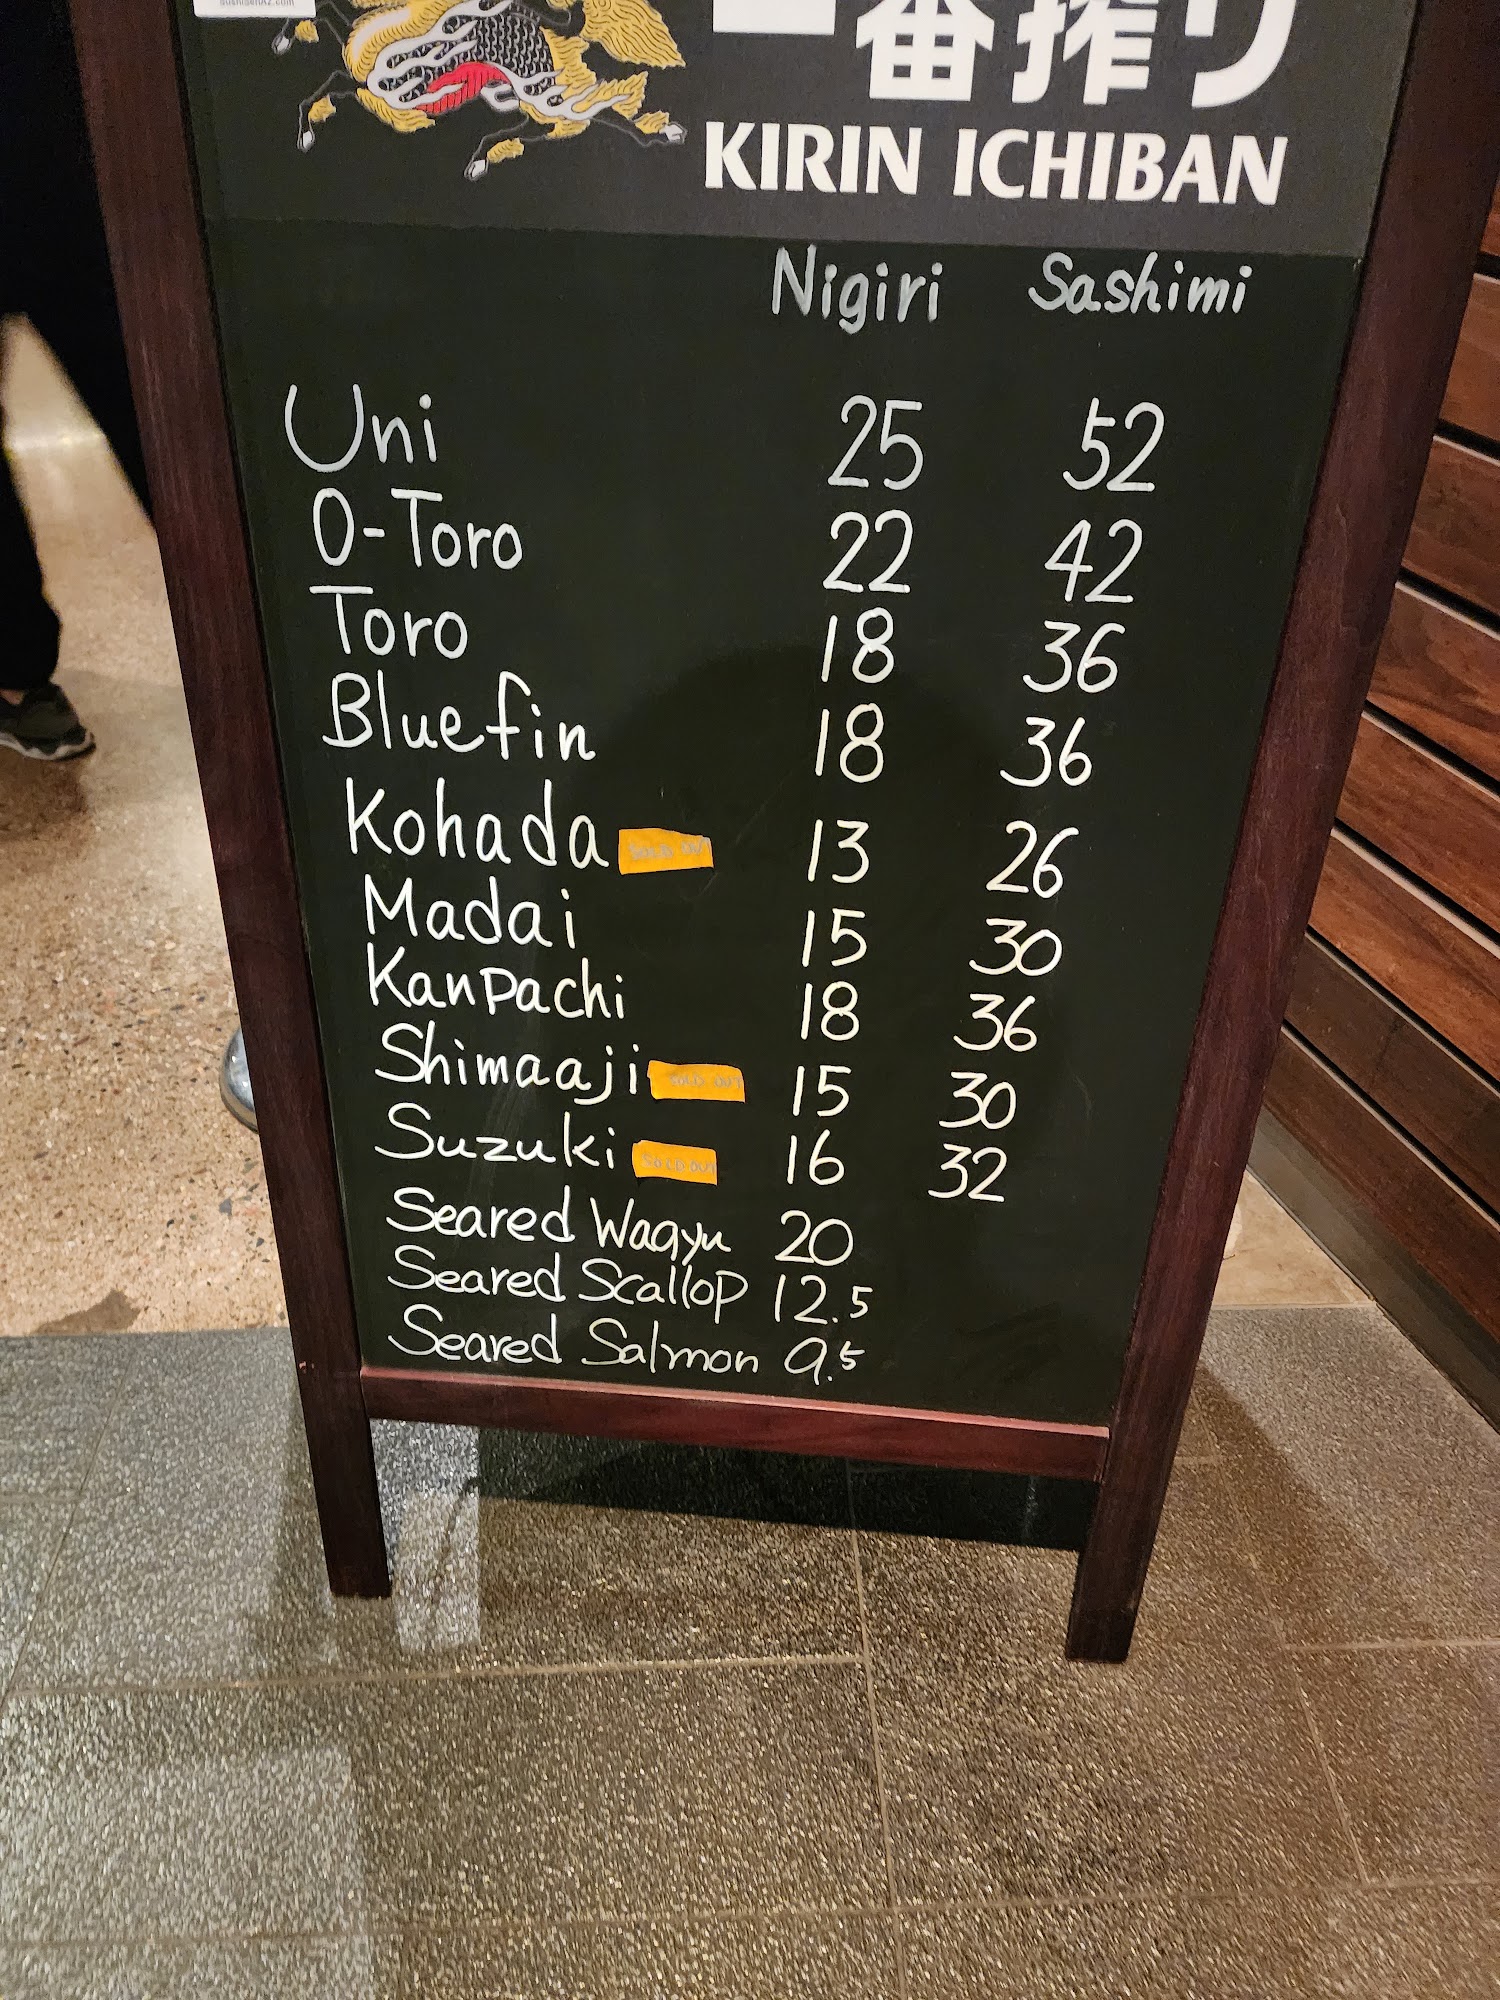 sushisenAZ.com
一番搾り
KIRIN ICHIBAN
Nigiri Sashimi
Uni 25 52
O-Toro 22 42
Toro 18 36
Bluefin 18 36
Kohada SOLD OUT 13 26
Madai 15 30
Kanpachi 18 36
Shimaaji SOLD OUT 15 30
Suzuki SOLD OUT 16 32
Seared Wagyu 20
Seared Scallop 12.5
Seared Salmon 9.5